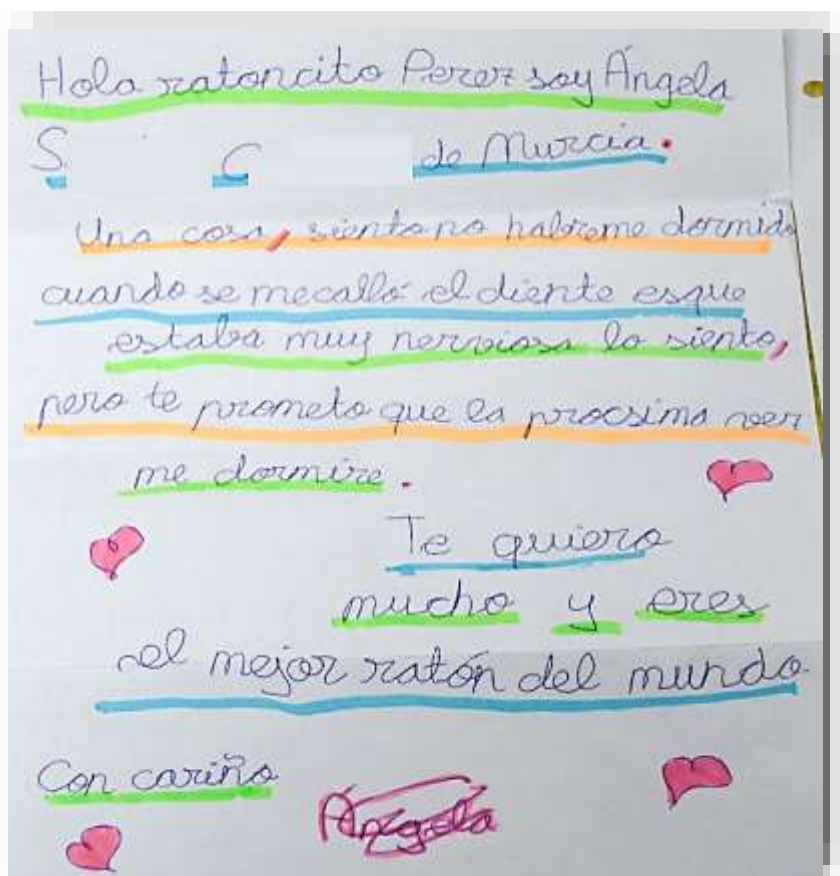 Hola ratoncito Perez soy Ángela
S C de Murcia.
Una cosa, siento no habreme dormido
cuando se mecalló el diente esque
estaba muy nerviosa lo siento,
pero te prometo que la procsima vez
me dormire.
Te quiero
mucho y eres
el mejor ratón del mundo
Con cariño
Ángela